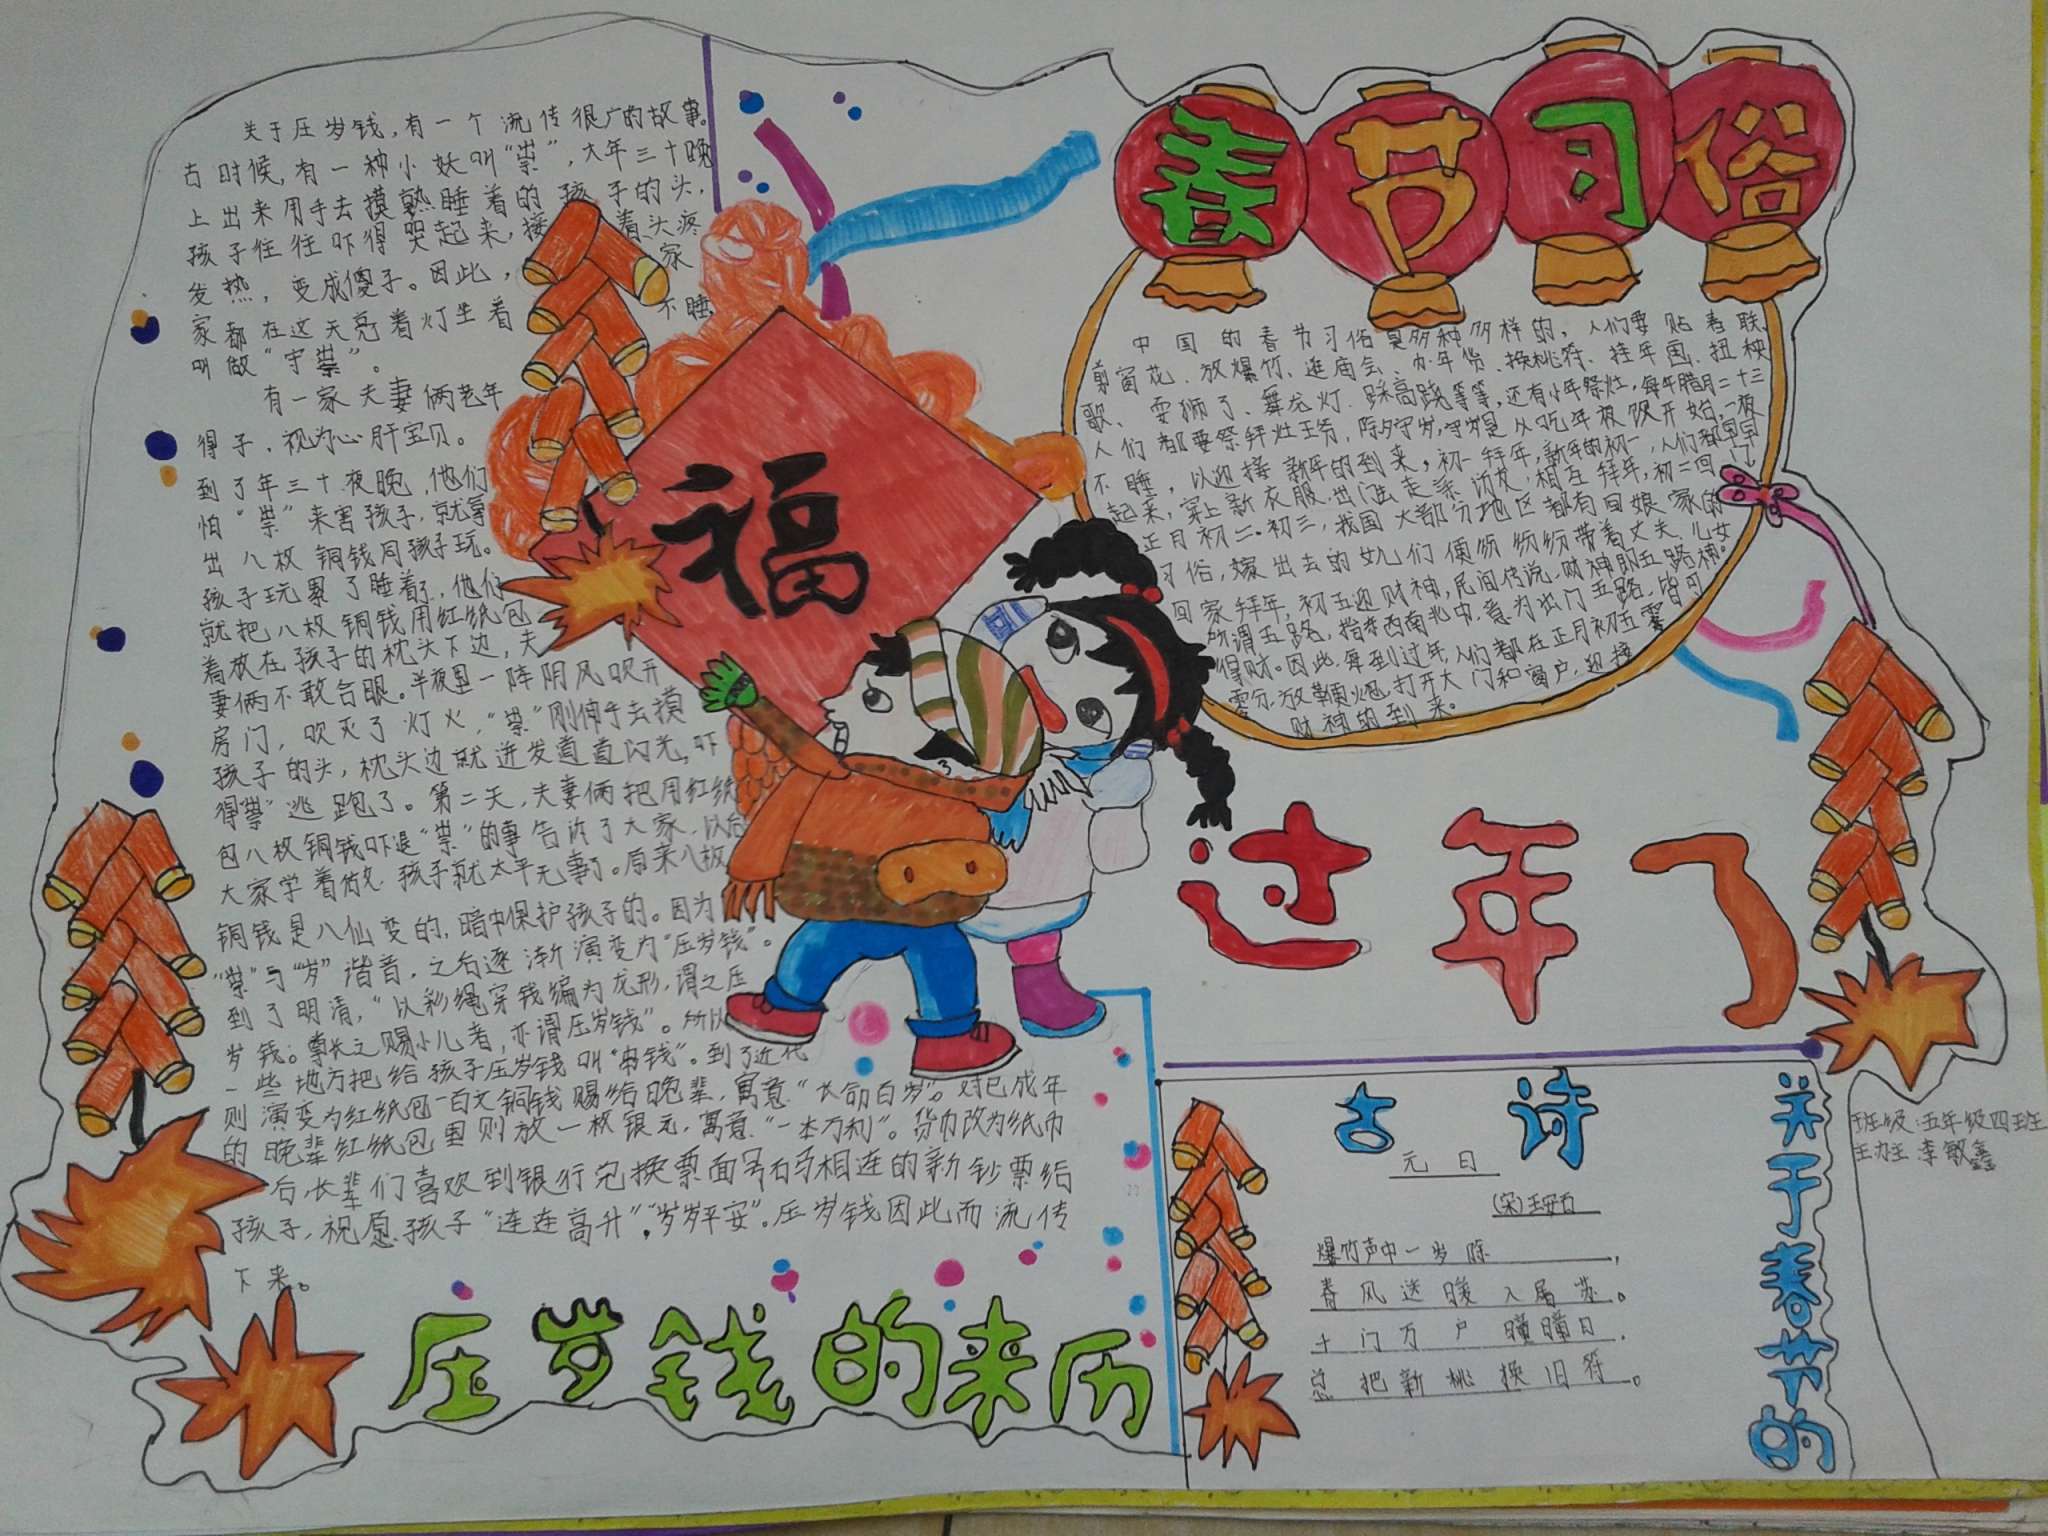 关于压岁钱，有一个流传很广的故事。
古时候，有一种小妖叫“祟”，大年三十晚
上出来用手去摸熟睡着的孩子的头，
孩子往往吓得哭起来，接着头疼
发热，变成傻子。因此，家
家都在这天亮着灯坐着不睡，
叫做“守祟”。
有一家夫妻俩老年
得子，视为心肝宝贝。
到了年三十夜晚，他们
怕“祟”来害孩子，就拿
出八枚铜钱同孩子玩。
孩子玩累了睡着了，他们
就把八枚铜钱用红纸包
着放在孩子的枕头下边，夫
妻俩不敢合眼。半夜里一阵阴风吹开
房门，吹灭了灯火，“祟”刚伸手去摸
孩子的头，枕头边就迸发道道闪光，吓
得“祟”逃跑了。第二天，夫妻俩把用红纸
包八枚铜钱吓退“祟”的事告诉了大家，以后
大家学着做，孩子就太平无事了。原来八枚
铜钱是八仙变的，暗中保护孩子的。因为
“祟”与“岁”谐音，之后逐渐演变为“压岁钱”。
到了明清，“以彩绳穿钱编为龙形，谓之压
岁钱。尊长之赐小儿者，亦谓压岁钱”。所以
一些地方把给孩子压岁钱叫“串钱”。到了近代
则演变为红纸包一百文铜钱赐给晚辈，寓意“长命百岁”。对已成年
的晚辈红纸包里则放一枚银元，寓意“一本万利”。货币改为纸币
后，长辈们喜欢到银行兑换票面号码相连的新钞票给
孩子，祝愿孩子“连连高升”，“岁岁平安”。压岁钱因此而流传
下来。
压岁钱的来历
福
春节习俗
中国的春节习俗是多种多样的，人们要贴春联、
剪窗花、放爆竹、逛庙会、办年货、换桃符、挂年画、扭秧
歌、耍狮子、舞龙灯、踩高跷等等，还有小年祭灶，每年腊月二十三
人们都要祭拜灶王爷，除夕守岁，守岁是从吃年夜饭开始，一夜
不睡，以迎接新年的到来，初一拜年，新年的初一，人们都早早
起来，穿上新衣服，出门去走亲访友，相互拜年，初二回门
正月初二、初三，我国大部分地区都有回娘家的
习俗，嫁出去的女儿们便纷纷纷带着丈夫、儿女
回家拜年，初五迎财神，民间传说，财神即五路神。
所谓五路，指东西南北中，意为出门五路，皆可
得财。因此，每到过年，人们都在正月初五零
零分，放鞭炮，打开大门和窗户，迎接
财神的到来。
过年了
古诗
元日
(宋)王安石
爆竹声中一岁除，
春风送暖入屠苏。
千门万户曈曈日，
总把新桃换旧符。
关于春节的
班级：五年级四班
主办：李敏鑫